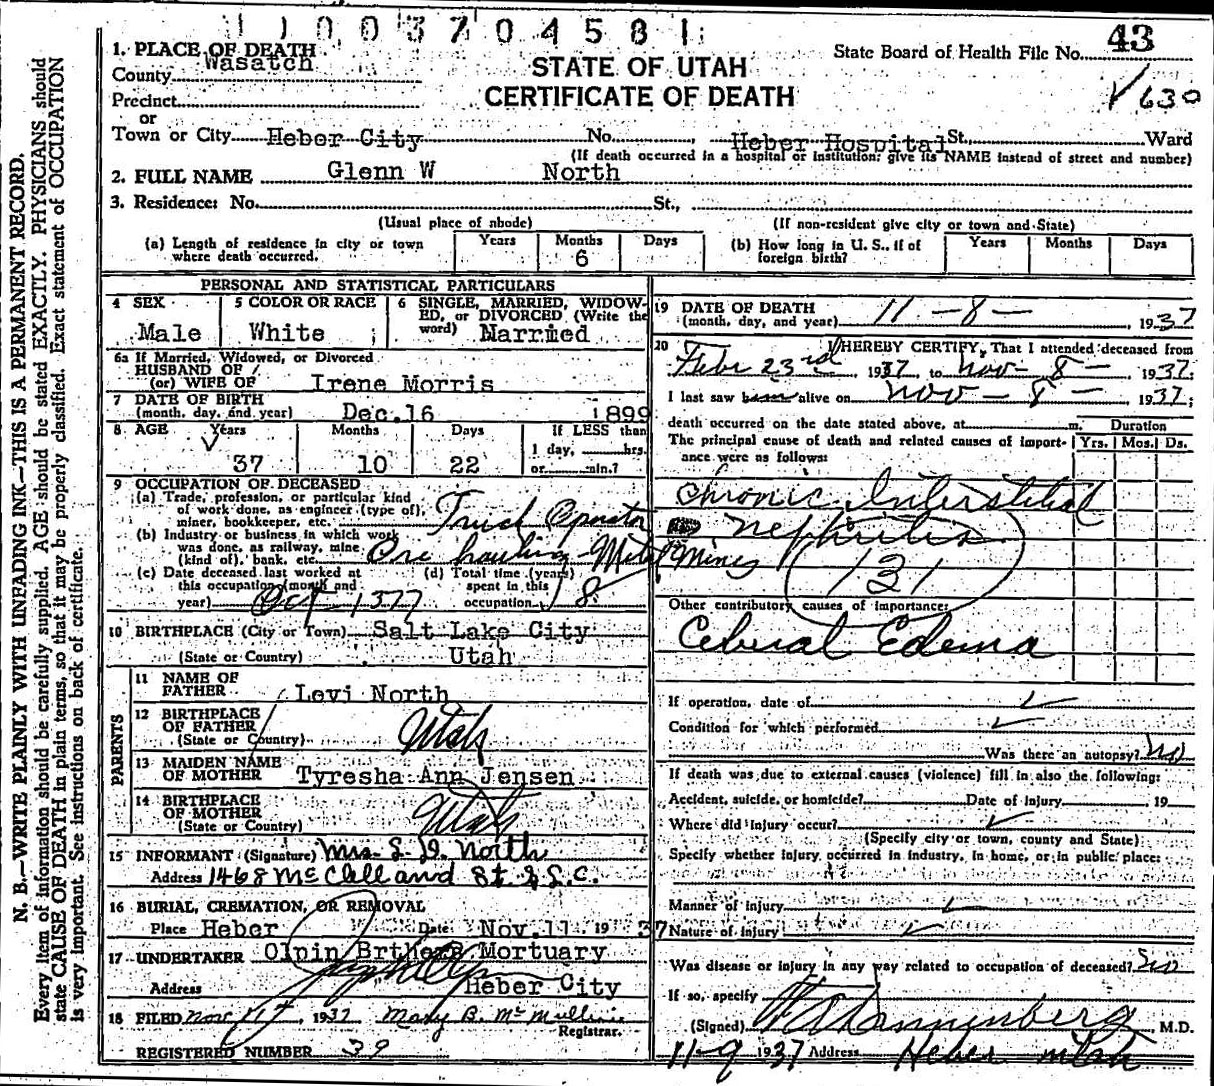 1 1 0 0 3 7 0 4 5 8 1
1. PLACE OF DEATH
State Board of Health File No. 43
County Wasatch
STATE OF UTAH
CERTIFICATE OF DEATH
√630
Precinct
or
Town or City Heber City No. Heber Hospital St. Ward
(If death occurred in a hospital or institution, give its NAME instead of street and number)
2. FULL NAME Glenn W North
3. Residence: No. St.,
(Usual place of abode) (If non-resident give city or town and State)
(a) Length of residence in city or town where death occurred. Years Months 6 Days
(b) How long in U. S., if of foreign birth? Years Months Days
PERSONAL AND STATISTICAL PARTICULARS
4 SEX Male
5 COLOR OR RACE White
6 SINGLE, MARRIED, WIDOWED, or DIVORCED (Write the word) Married
6a If Married, Widowed, or Divorced
HUSBAND OF
(or) WIFE OF Irene Morris
7 DATE OF BIRTH
(month, day, and year) Dec. 16 1899
8 AGE Years Months Days If LESS than
1 day, hrs.
37 10 22 or min.?
9 OCCUPATION OF DECEASED
(a) Trade, profession, or particular kind
of work done, as engineer (type of),
miner, bookkeeper, etc. Truck Oprator
(b) Industry or business in which work
was done, as railway, mine
(kind of), bank, etc. Ore hauling - Metal Mines
(c) Date deceased last worked at
this occupation (month and
year) Oct 1377
(d) Total time (years)
spent in this
occupation 8
10 BIRTHPLACE (City or Town) Salt Lake City
(State or Country) Utah
PARENTS
11 NAME OF
FATHER Levi North
12 BIRTHPLACE
OF FATHER
(State or Country) Utah
13 MAIDEN NAME
OF MOTHER Tyresha Ann Jensen
14 BIRTHPLACE
OF MOTHER
(State or Country) Utah
15 INFORMANT (Signature) Mrs. L. D. North
Address 1468 McClelland St. S.L.C.
16 BURIAL, CREMATION, OR REMOVAL
Place Heber Date Nov. 11 1937
17 UNDERTAKER Olpin Brthers Mortuary
Address Heber City
18 FILED Nov 11, 1937 Mary B. McMullin
Registrar.
REGISTERED NUMBER 39
19 DATE OF DEATH
(month, day, and year) 11 - 8 - , 1937
20 I HEREBY CERTIFY, That I attended deceased from
Febr 23rd 1937 to Nov - 8 - 1937;
I last saw him alive on Nov - 8 - 1937;
death occurred on the date stated above, at m. Duration
The principal cause of death and related causes of importance were as follows: Yrs. Mos. Ds.
Chronic Interstitial
Nephritis
131
Other contributory causes of importance:
Cebural Edema
If operation, date of
Condition for which performed
Was there an autopsy? No
If death was due to external causes (violence) fill in also the following:
Accident, suicide, or homicide? Date of injury 19
Where did injury occur?
(Specify city or town, county and State)
Specify whether injury occurred in industry, in home, or in public place:
Manner of injury
Nature of injury
Was disease or injury in any way related to occupation of deceased? No
If so, specify
(Signed) Dannenberg, M.D.
11-9 1937 Address Heber Utah
N. B.—WRITE PLAINLY WITH UNFADING INK—THIS IS A PERMANENT RECORD.
Every item of information should be carefully supplied. AGE should be stated EXACTLY. PHYSICIANS should
state CAUSE OF DEATH in plain terms, so that it may be properly classified. Exact statement of OCCUPATION
is very important. See instructions on back of certificate.